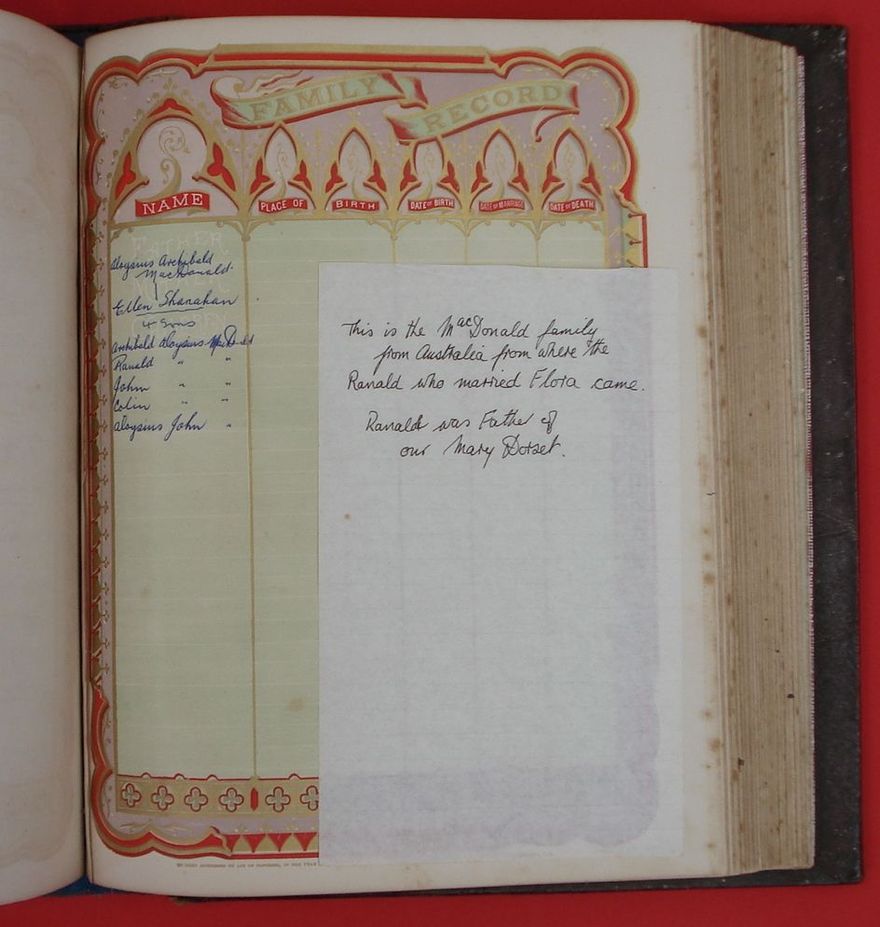 FAMILY RECORD
NAME
PLACE OF BIRTH
DATE OF BIRTH
DATE OF MARRIAGE
DATE OF DEATH
FATHER
Aloysius Archibald
MacDonald.
Ellen Shanahan
4 Sons
Archibald Aloysius MacDonald
Ranald " "
John " "
Colin " "
Aloysius John "
This is the MacDonald family
from Australia from where the
Ranald who married Flora came.
Ranald was Father of
our Mary Dorset.